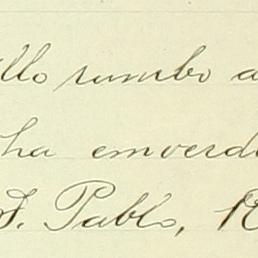 llo rumbo a
ha enverd
S. Pablo, R